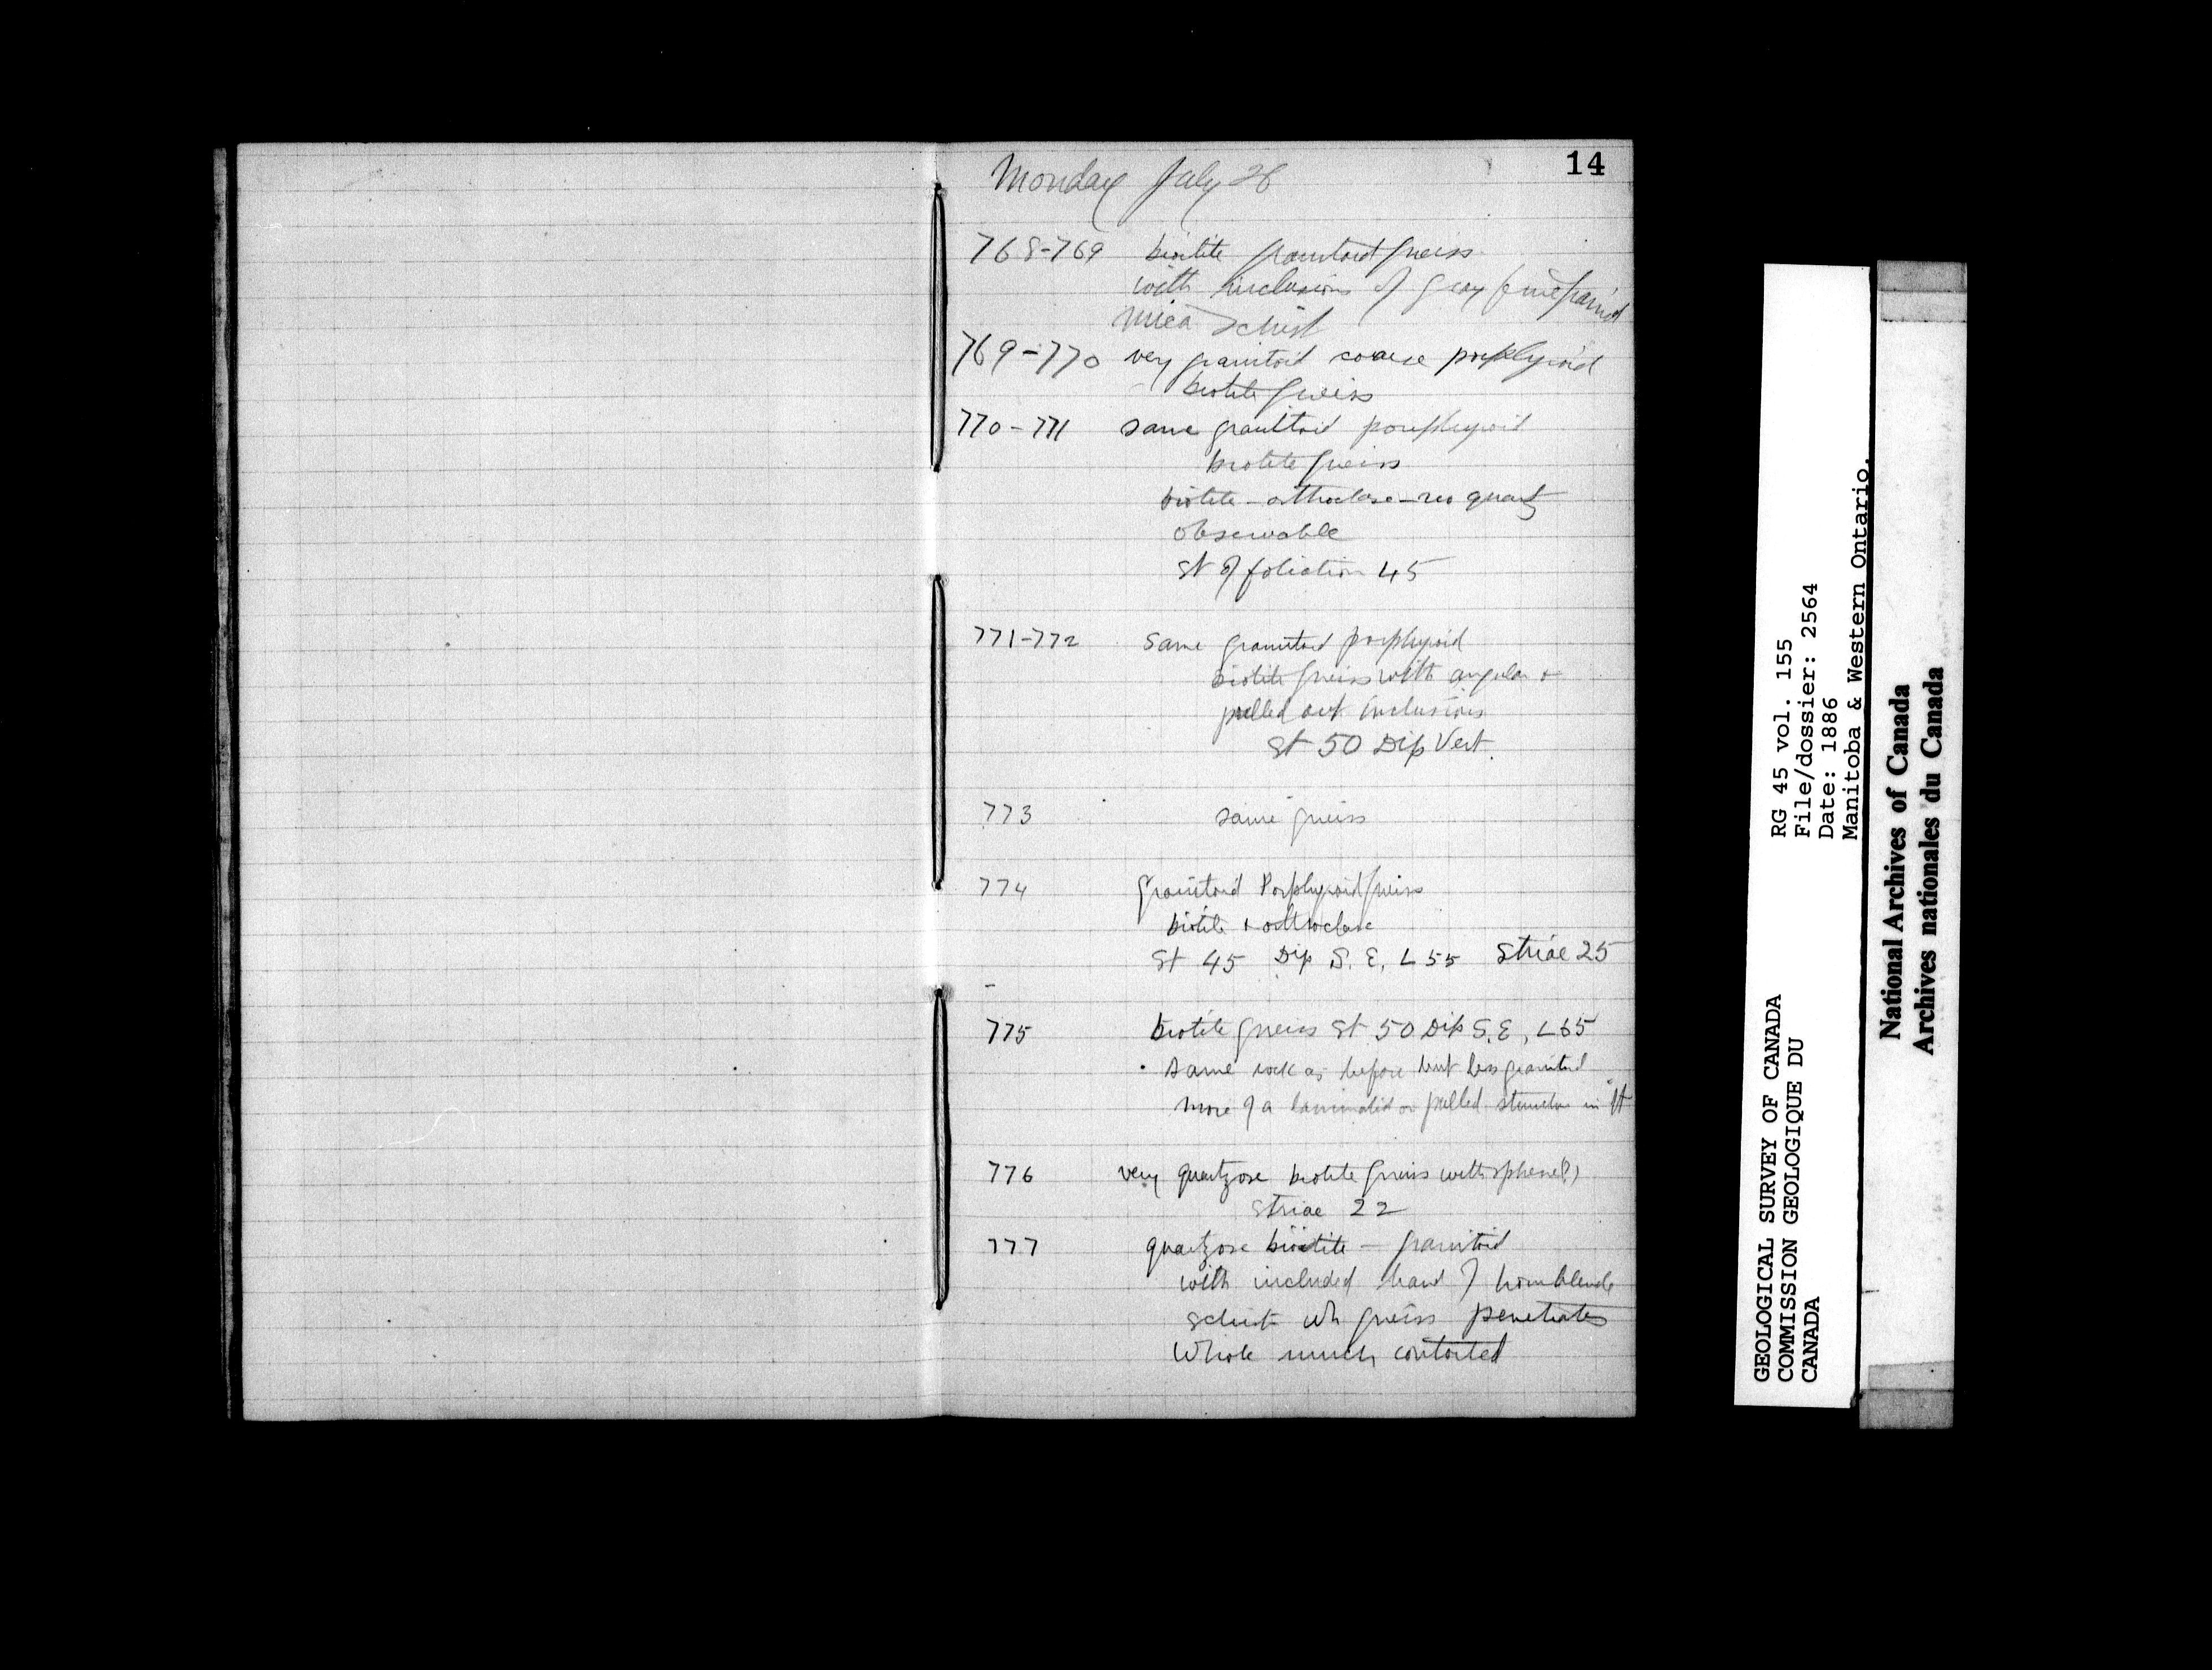 14
Monday July 26
768-769 biotite granitoid gneiss
with inclusions of gray fine grained
mica schist
769-770 very granitoid coarse porphyroid
biotite gneiss
770-771 same granitoid porphyroid
biotite gneiss
biotite - orthoclase - no quartz
observable
St of foliation 45
771-772 same granitoid porphyroid
biotite gneiss with angular +
pulled out inclusions
St 50 Dip Vert.
773 same gneiss
774 granitoid Porphyroid gneiss
biotite + orthoclase
St 45 Dip S.E. L 55 Striae 25
775 biotite gneiss St 50 Dip S.E, L65
same rock as before but less granitoid
more of a laminated or pulled structure in it
776 very quartzose biotite gneiss with sphene(?)
Striae 22
777 quartzose biotite - granitoid
with included band of hornblende
schist wh gneiss penetrates
Whole much contorted
GEOLOGICAL SURVEY OF CANADA
COMMISSION GEOLOGIQUE DU
CANADA
RG 45 vol. 155
File/dossier: 2564
Date: 1886
Manitoba & Western Ontario.
National Archives of Canada
Archives nationales du Canada